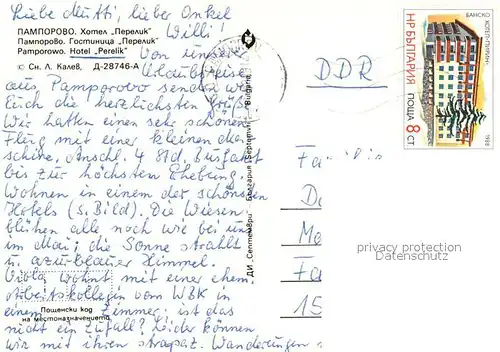 Liebe Mutti, lieber Onkel
Willi!
ПАМПОРОВО. Хотел „Перелик"
Пампорово. Гостиница „Перелик"
Pamporowo. Hotel „Perelik"
© Сн. Л. Калев, Д-28746-А
Von unserer
Urlaubsreise
aus Pamporovo senden wir
Euch die herzlichsten Grüße.
Wir hatten einen sehr schönen
Flug mit einer kleinen Ma-
schine. Anschl. 4 Std. Busfahrt
bis zur höchsten Erhebung.
Wohnen in einem der schönsten
Hotels (s. Bild). Die Wiesen
blühen alle noch wie bei uns
im Mai; die Sonne strahlt
u. azurblauer Himmel.
Viola wohnt mit einer ehem.
Arbeitskollegin vom WBK in
einem Zimmer; ist das
nicht ein Zufall? Leider können
wir mit ihren strapaz. Wanderungen
Пощенски код
на местоназначението
ДИ „Септември" България (Septemvri) Bulgarie
DDR
НР БЪЛГАРИЯ
ПОЩА 8 СТ.
БАНСКО
ХОТЕЛ „ПИРИН"
1988
Fa
D
Mo
Fa
15
privacy protection
VERDACOM